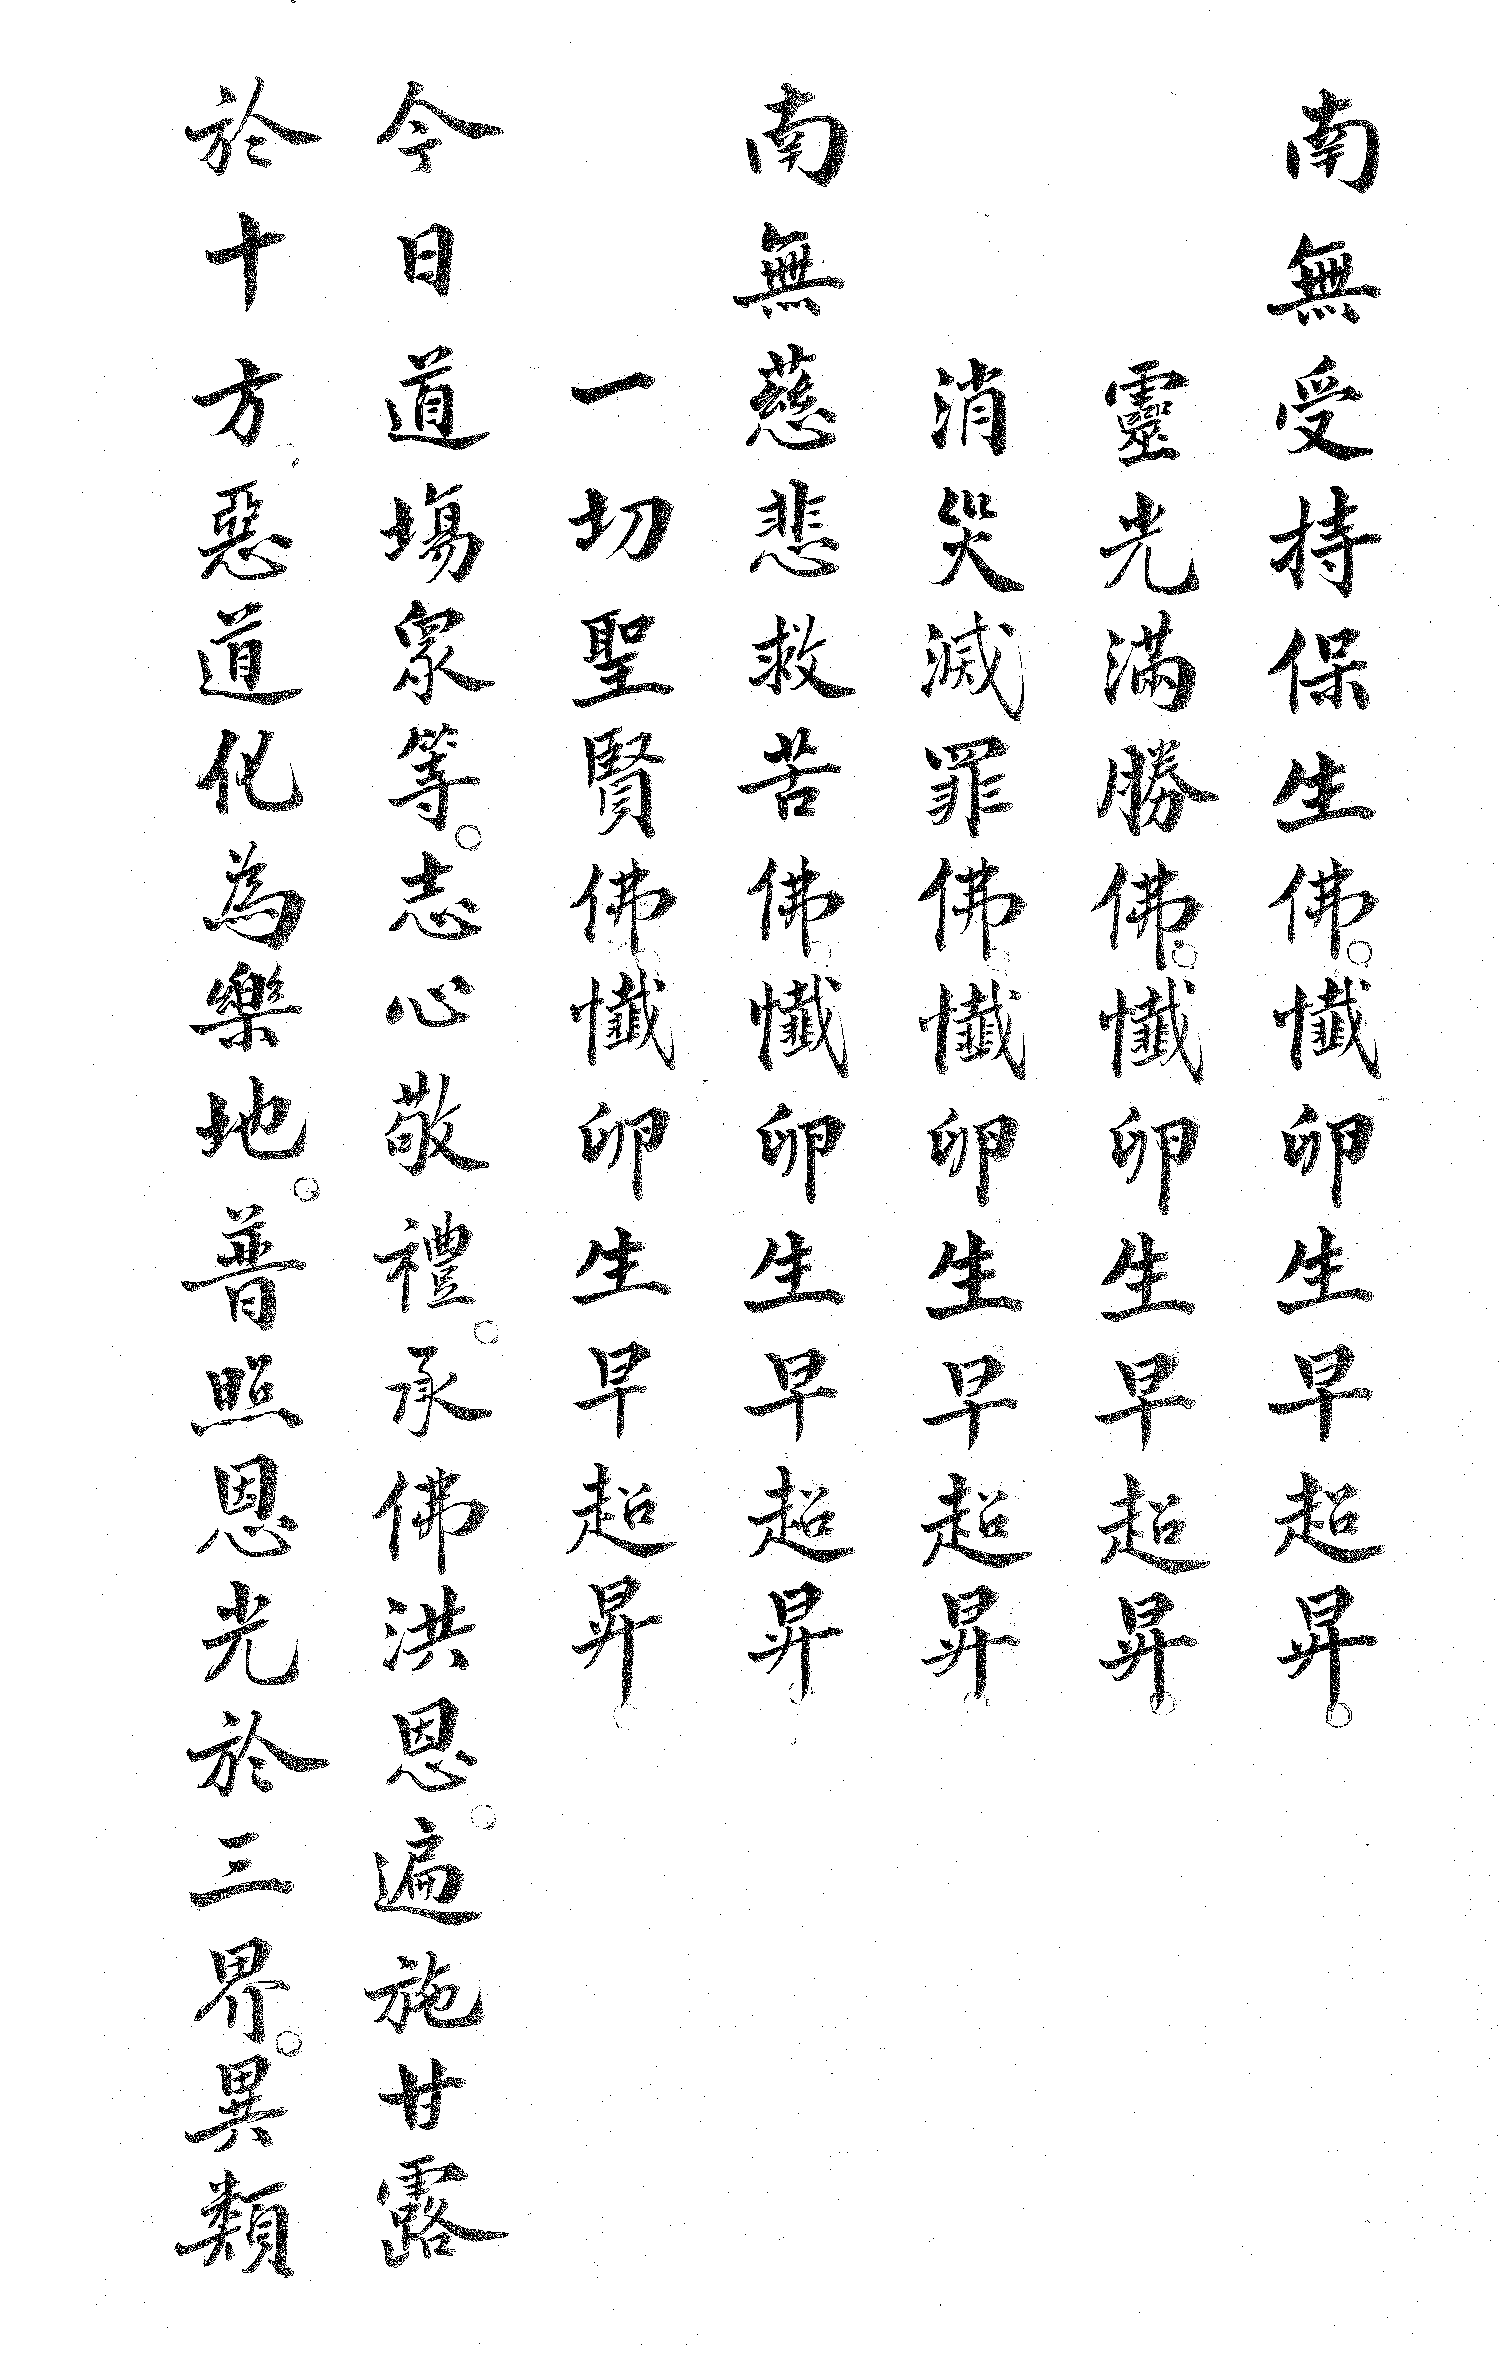 南無受持保生佛。懺卯生早超昇。
靈光滿勝佛。懺卯生早超昇。
消災滅罪佛。懺卯生早超昇。
南無慈悲救苦佛。懺卯生早超昇。
一切聖賢佛。懺卯生早超昇。
今日道塲眾等。志心敬禮。承佛洪恩。遍施甘露
於十方惡道化為樂地。普照恩光於三界。異類